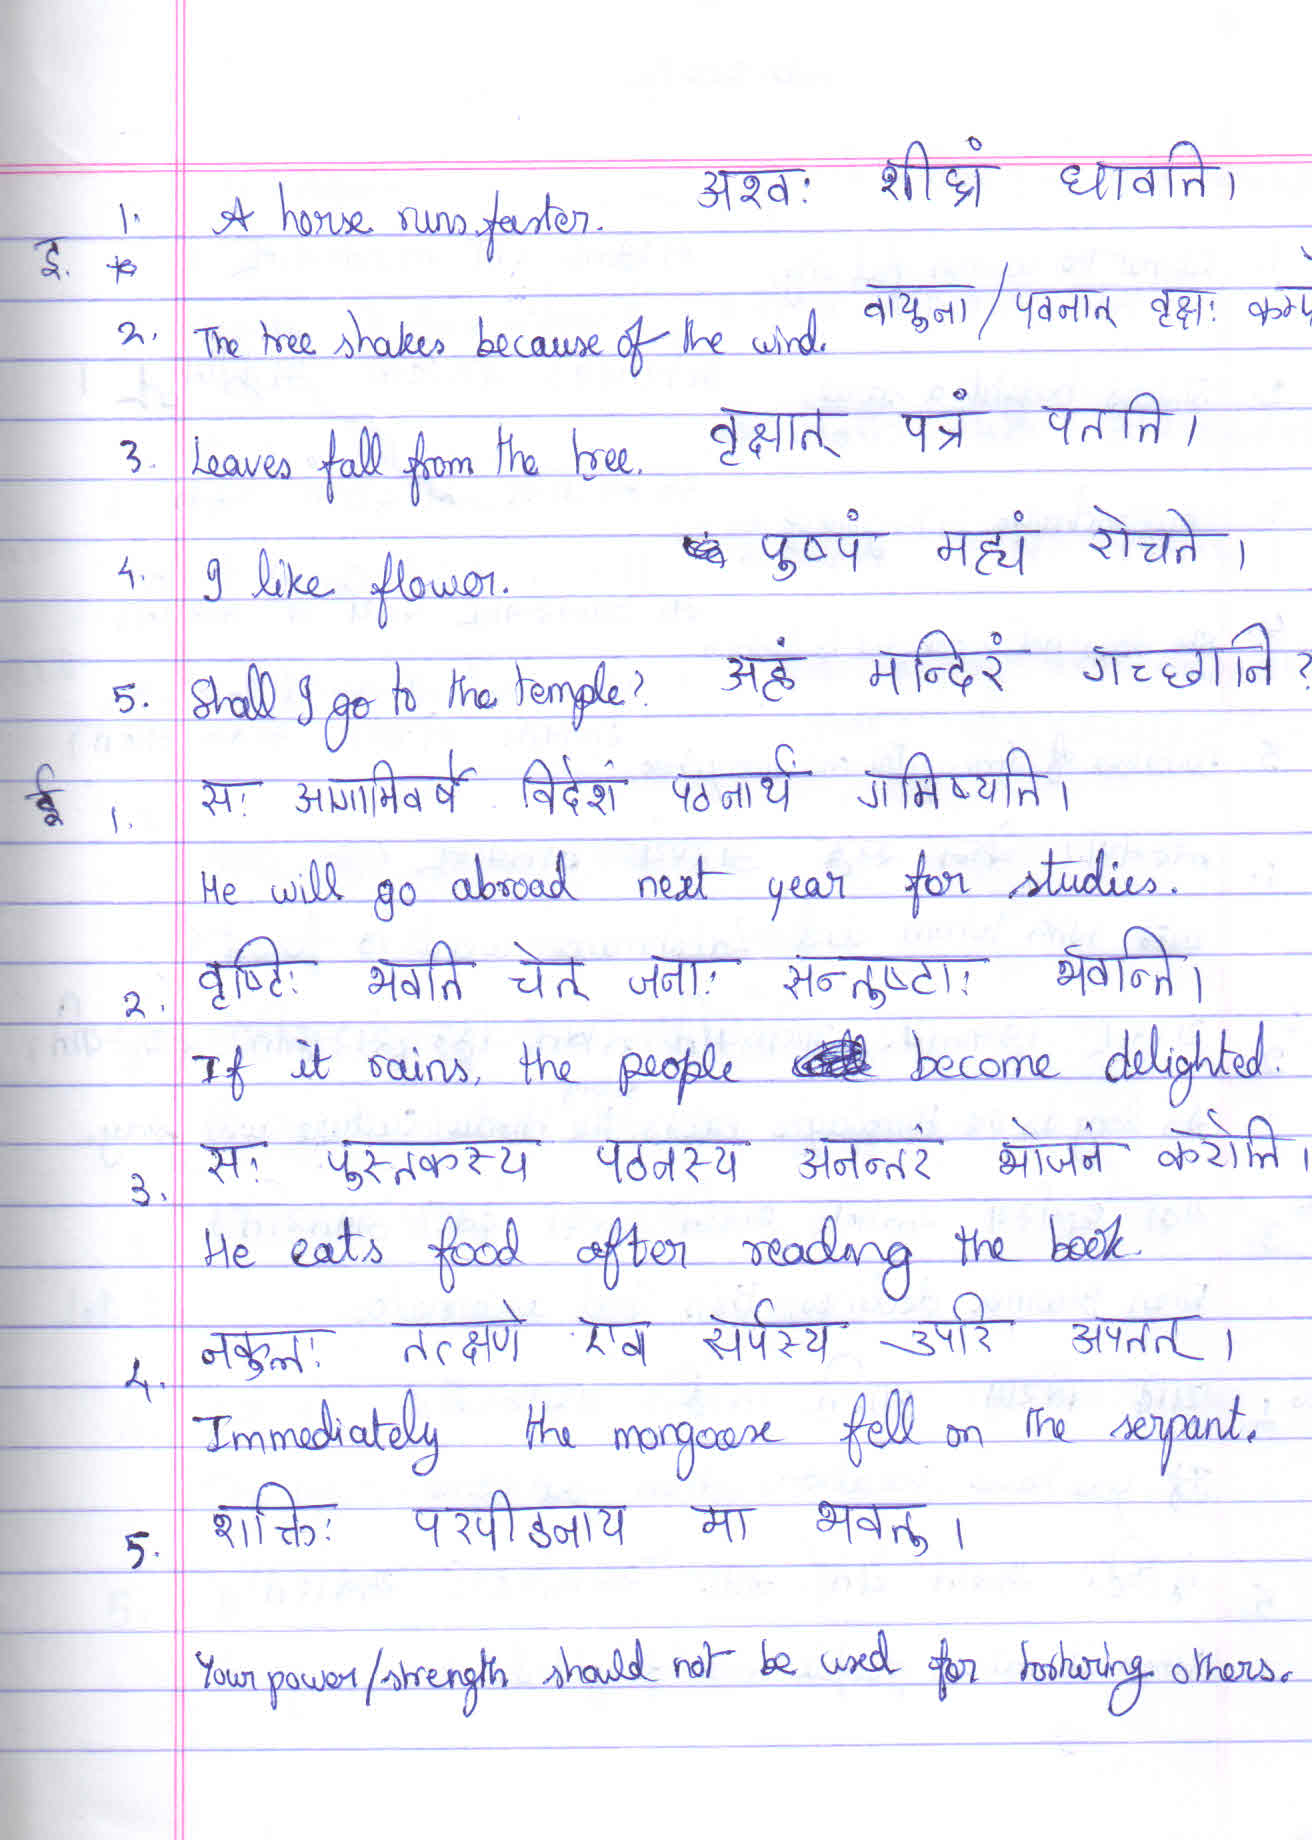 1. A horse runs faster. अश्वः शीघ्रं धावति।
इ.
2. The tree shakes because of the wind. वायुना / पवनात् वृक्षः
3. Leaves fall from the tree. वृक्षात् पत्रं पतति।
4. I like flower. पुष्पं मह्यं रोचते।
5. Shall I go to the temple? अहं मन्दिरं गच्छानि?
ई 1. सः आगामिवर्षे विदेशं पठनार्थं गमिष्यति।
He will go abroad next year for studies.
2. वृष्टिः भवति चेत् जनाः सन्तुष्टाः भवन्ति।
If it rains, the people become delighted.
3. सः पुस्तकस्य पठनस्य अनन्तरं भोजनं करोति।
He eats food after reading the book.
4. नकुलः तत्क्षणे एव सर्पस्य उपरि अपतत्।
Immediately the mongoose fell on the serpant.
5. शक्तिः परपीडनाय मा भवतु।
Your power/strength should not be used for torturing others.